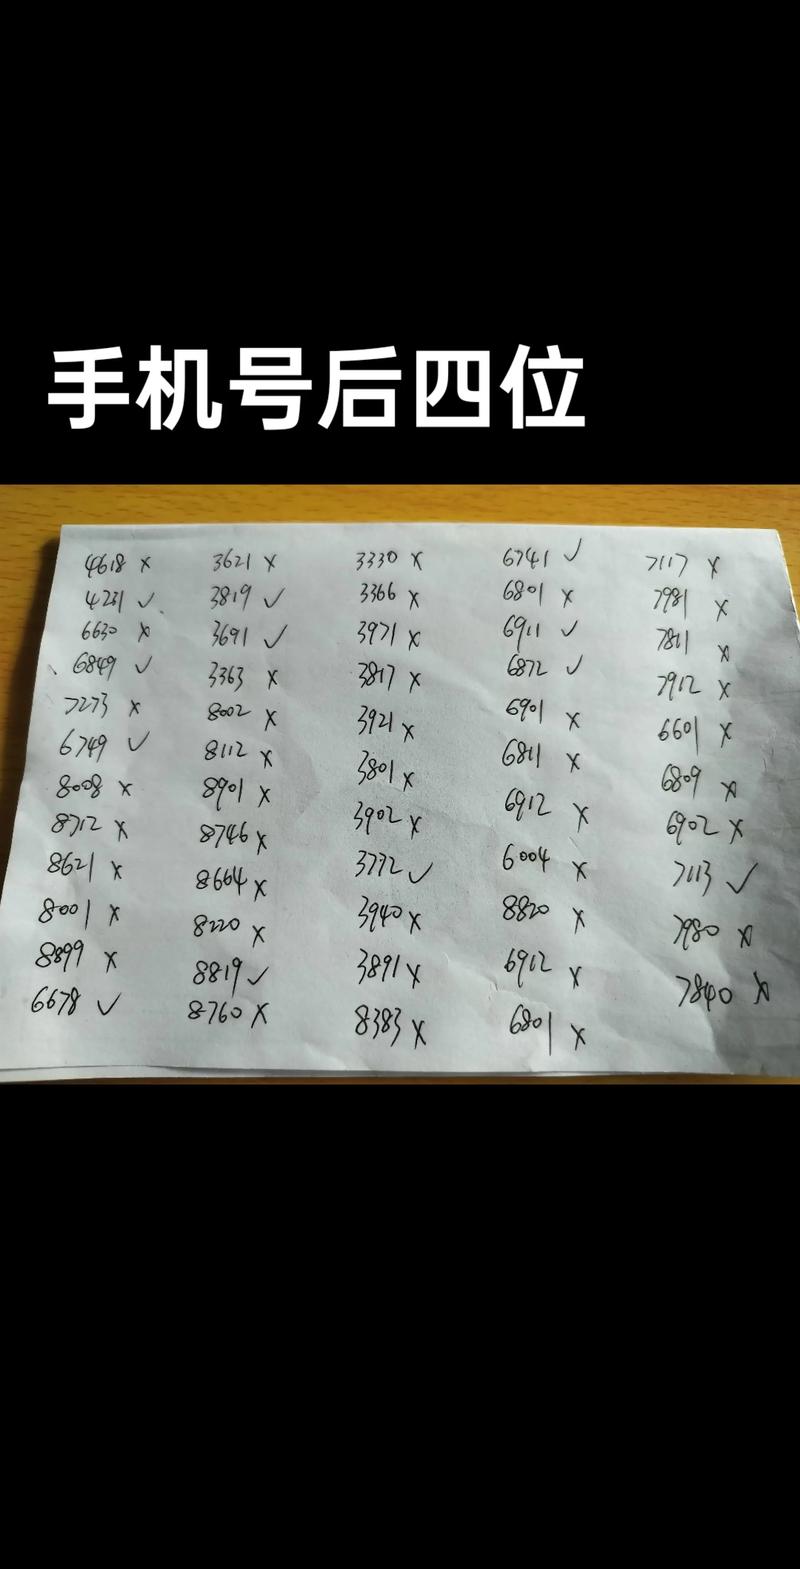 手机号后四位
4618 × 3621 × 3330 × 6741 ✓ 7117 ×
4231 ✓ 3819 ✓ 3366 × 6801 × 7981 ×
6630 × 3691 ✓ 3971 × 6911 ✓ 7811 ×
6849 ✓ 3363 × 3817 × 6872 ✓ 7912 ×
7273 × 8002 × 3921 × 6901 × 6601 ×
6749 ✓ 8112 × 3801 × 6811 × 6809 ×
8008 × 8901 × 3902 × 6912 × 6902 ×
8712 × 8746 × 3772 ✓ 6004 × 7113 ✓
8621 × 8664 × 3940 × 8820 × 7980 ×
8001 × 8220 × 3891 × 6912 × 7840 ×
8899 × 8819 ✓ 8383 × 6801 ×
6678 ✓ 8760 ×